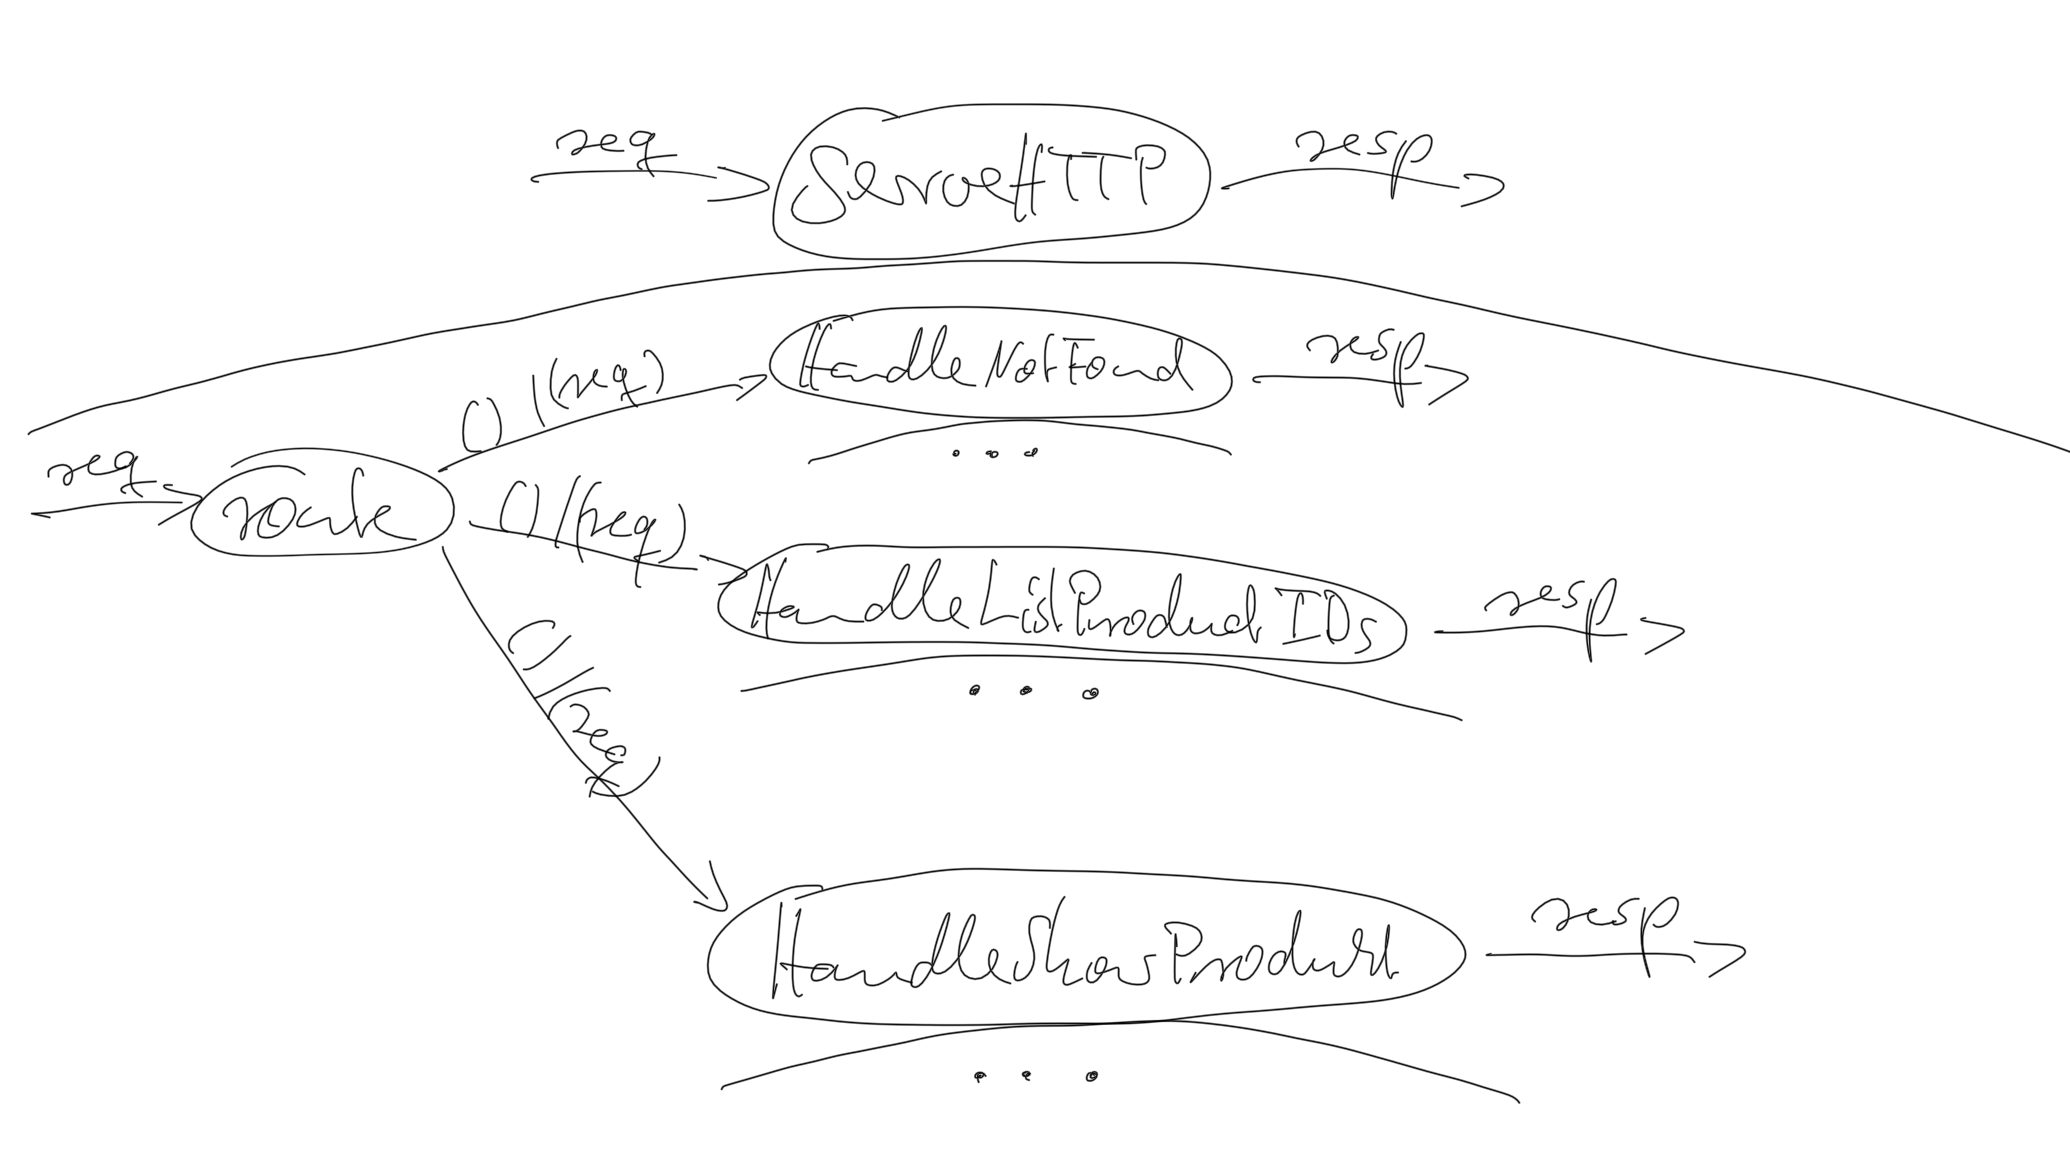 req ServeHTTP resp
() | (req) HandleNotFound resp
...
req route
() | (req) HandleListProductIDs resp
...
() | (req)
HandleShowProduct resp
...